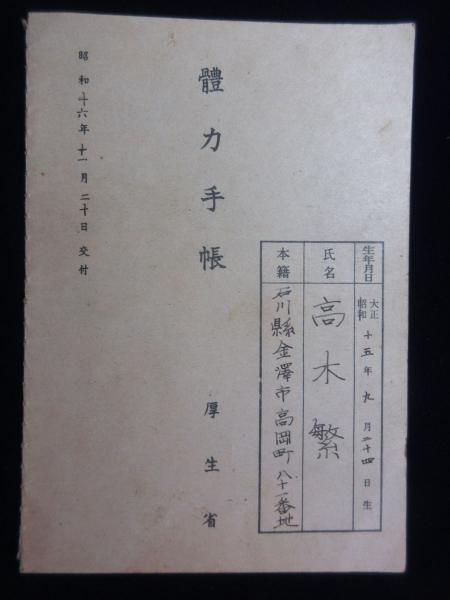 生年月日
大正
昭和
十五年九月二十四日生
氏名
高木繁
本籍
石川縣金澤市高岡町八十一番地
體力手帳
厚生省
昭和十六年十一月二十日交付